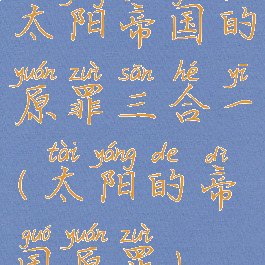 太阳帝国的
yuán zuì sān hé yī
原罪三合一
tài yáng de dì
(太阳的帝
guó yuán zuì
国原罪)